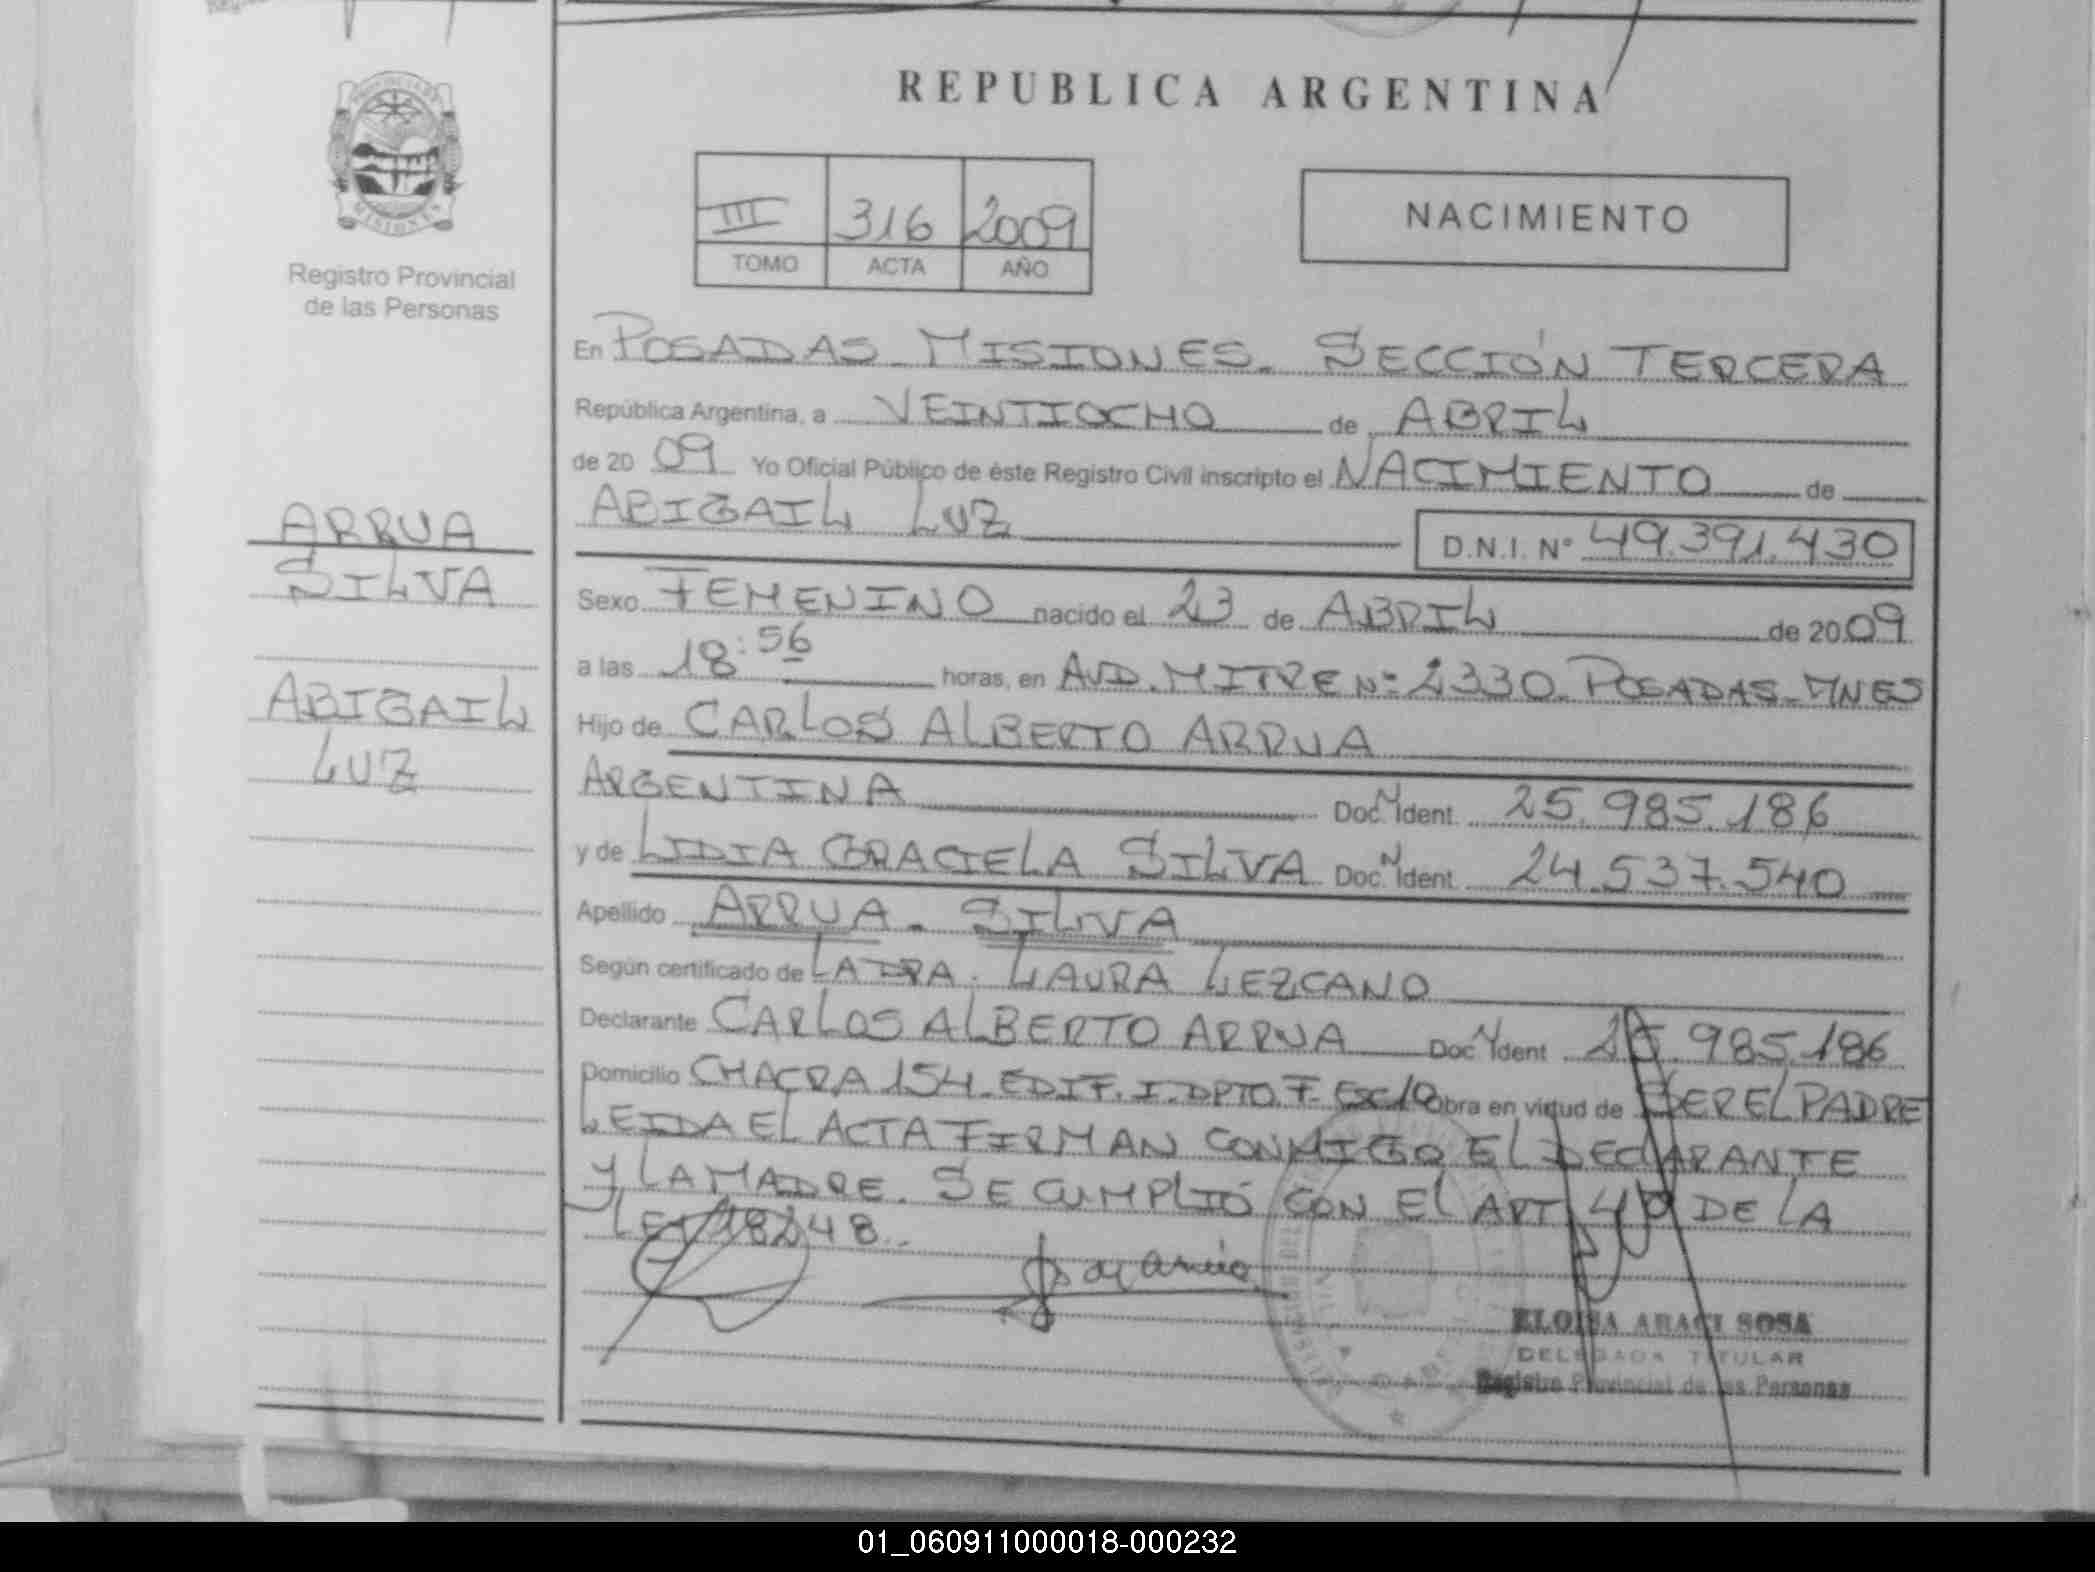 REPUBLICA ARGENTINA
PROVINCIA DE
MISIONES
Registro Provincial
de las Personas
III 316 2009
TOMO ACTA AÑO
NACIMIENTO
En POSADAS - MISIONES - SECCIÓN TERCERA
República Argentina, a VEINTIOCHO de ABRIL
de 2009 Yo Oficial Público de éste Registro Civil inscripto el NACIMIENTO de
ABIGAIL LUZ D.N.I. N° 49.391.430
ARRUA
SILVA
ABIGAIL
LUZ
Sexo FEMENINO nacido el 23 de ABRIL de 2009
a las 18:56 horas, en AVD. MITRE N° 2330 - POSADAS - MNES
Hijo de CARLOS ALBERTO ARRUA
ARGENTINA Doc. N Ident. 25.985.186
y de LIDIA GRACIELA SILVA Doc. N Ident. 24.537.540
Apellido ARRUA - SILVA
Según certificado de LA DRA. LAURA LEZCANO
Declarante CARLOS ALBERTO ARRUA Doc N Ident 25.985.186
Domicilio CHACRA 154 - EDIF. I - DPTO. F - ESC 10 Obra en virtud de SER EL PADRE
LEIDA EL ACTA FIRMAN CONMIGO EL DECLARANTE
Y LA MADRE. SE CUMPLIÓ CON EL ART 40 DE LA
LEY 18248.
ELOISA ARACI SOSA
DELEGADA TITULAR
Registro Provincial de las Personas
01_060911000018-000232